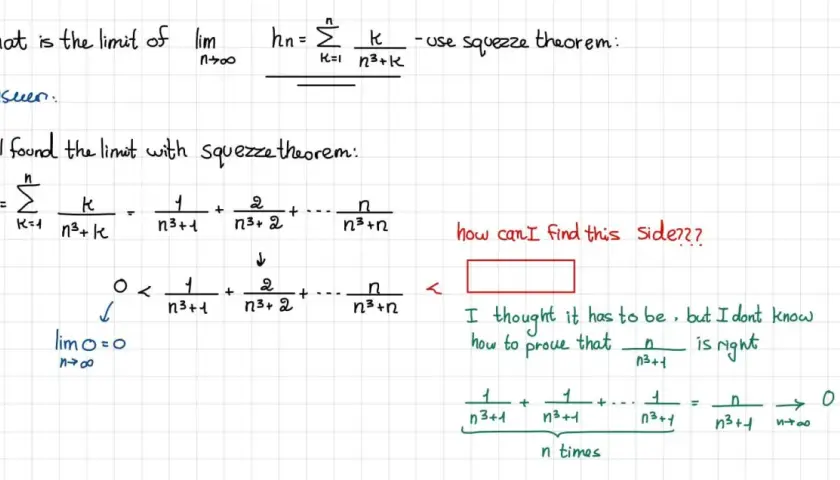 is the limit of lim n→∞ hn = Σ k=1 n k/(n³+k) - use squezze theorem:
found the limit with squezze theorem:
= Σ k=1 n k/(n³+k) = 1/(n³+1) + 2/(n³+2) + ... n/(n³+n)
how can I find this side???
↓
0 < 1/(n³+1) + 2/(n³+2) + ... n/(n³+n) <
lim n→∞ 0 = 0
I thought it has to be, but I dont know
how to prove that n/(n³+1) is right
1/(n³+1) + 1/(n³+1) + ... 1/(n³+1) = n/(n³+1) → n→∞ 0
n times